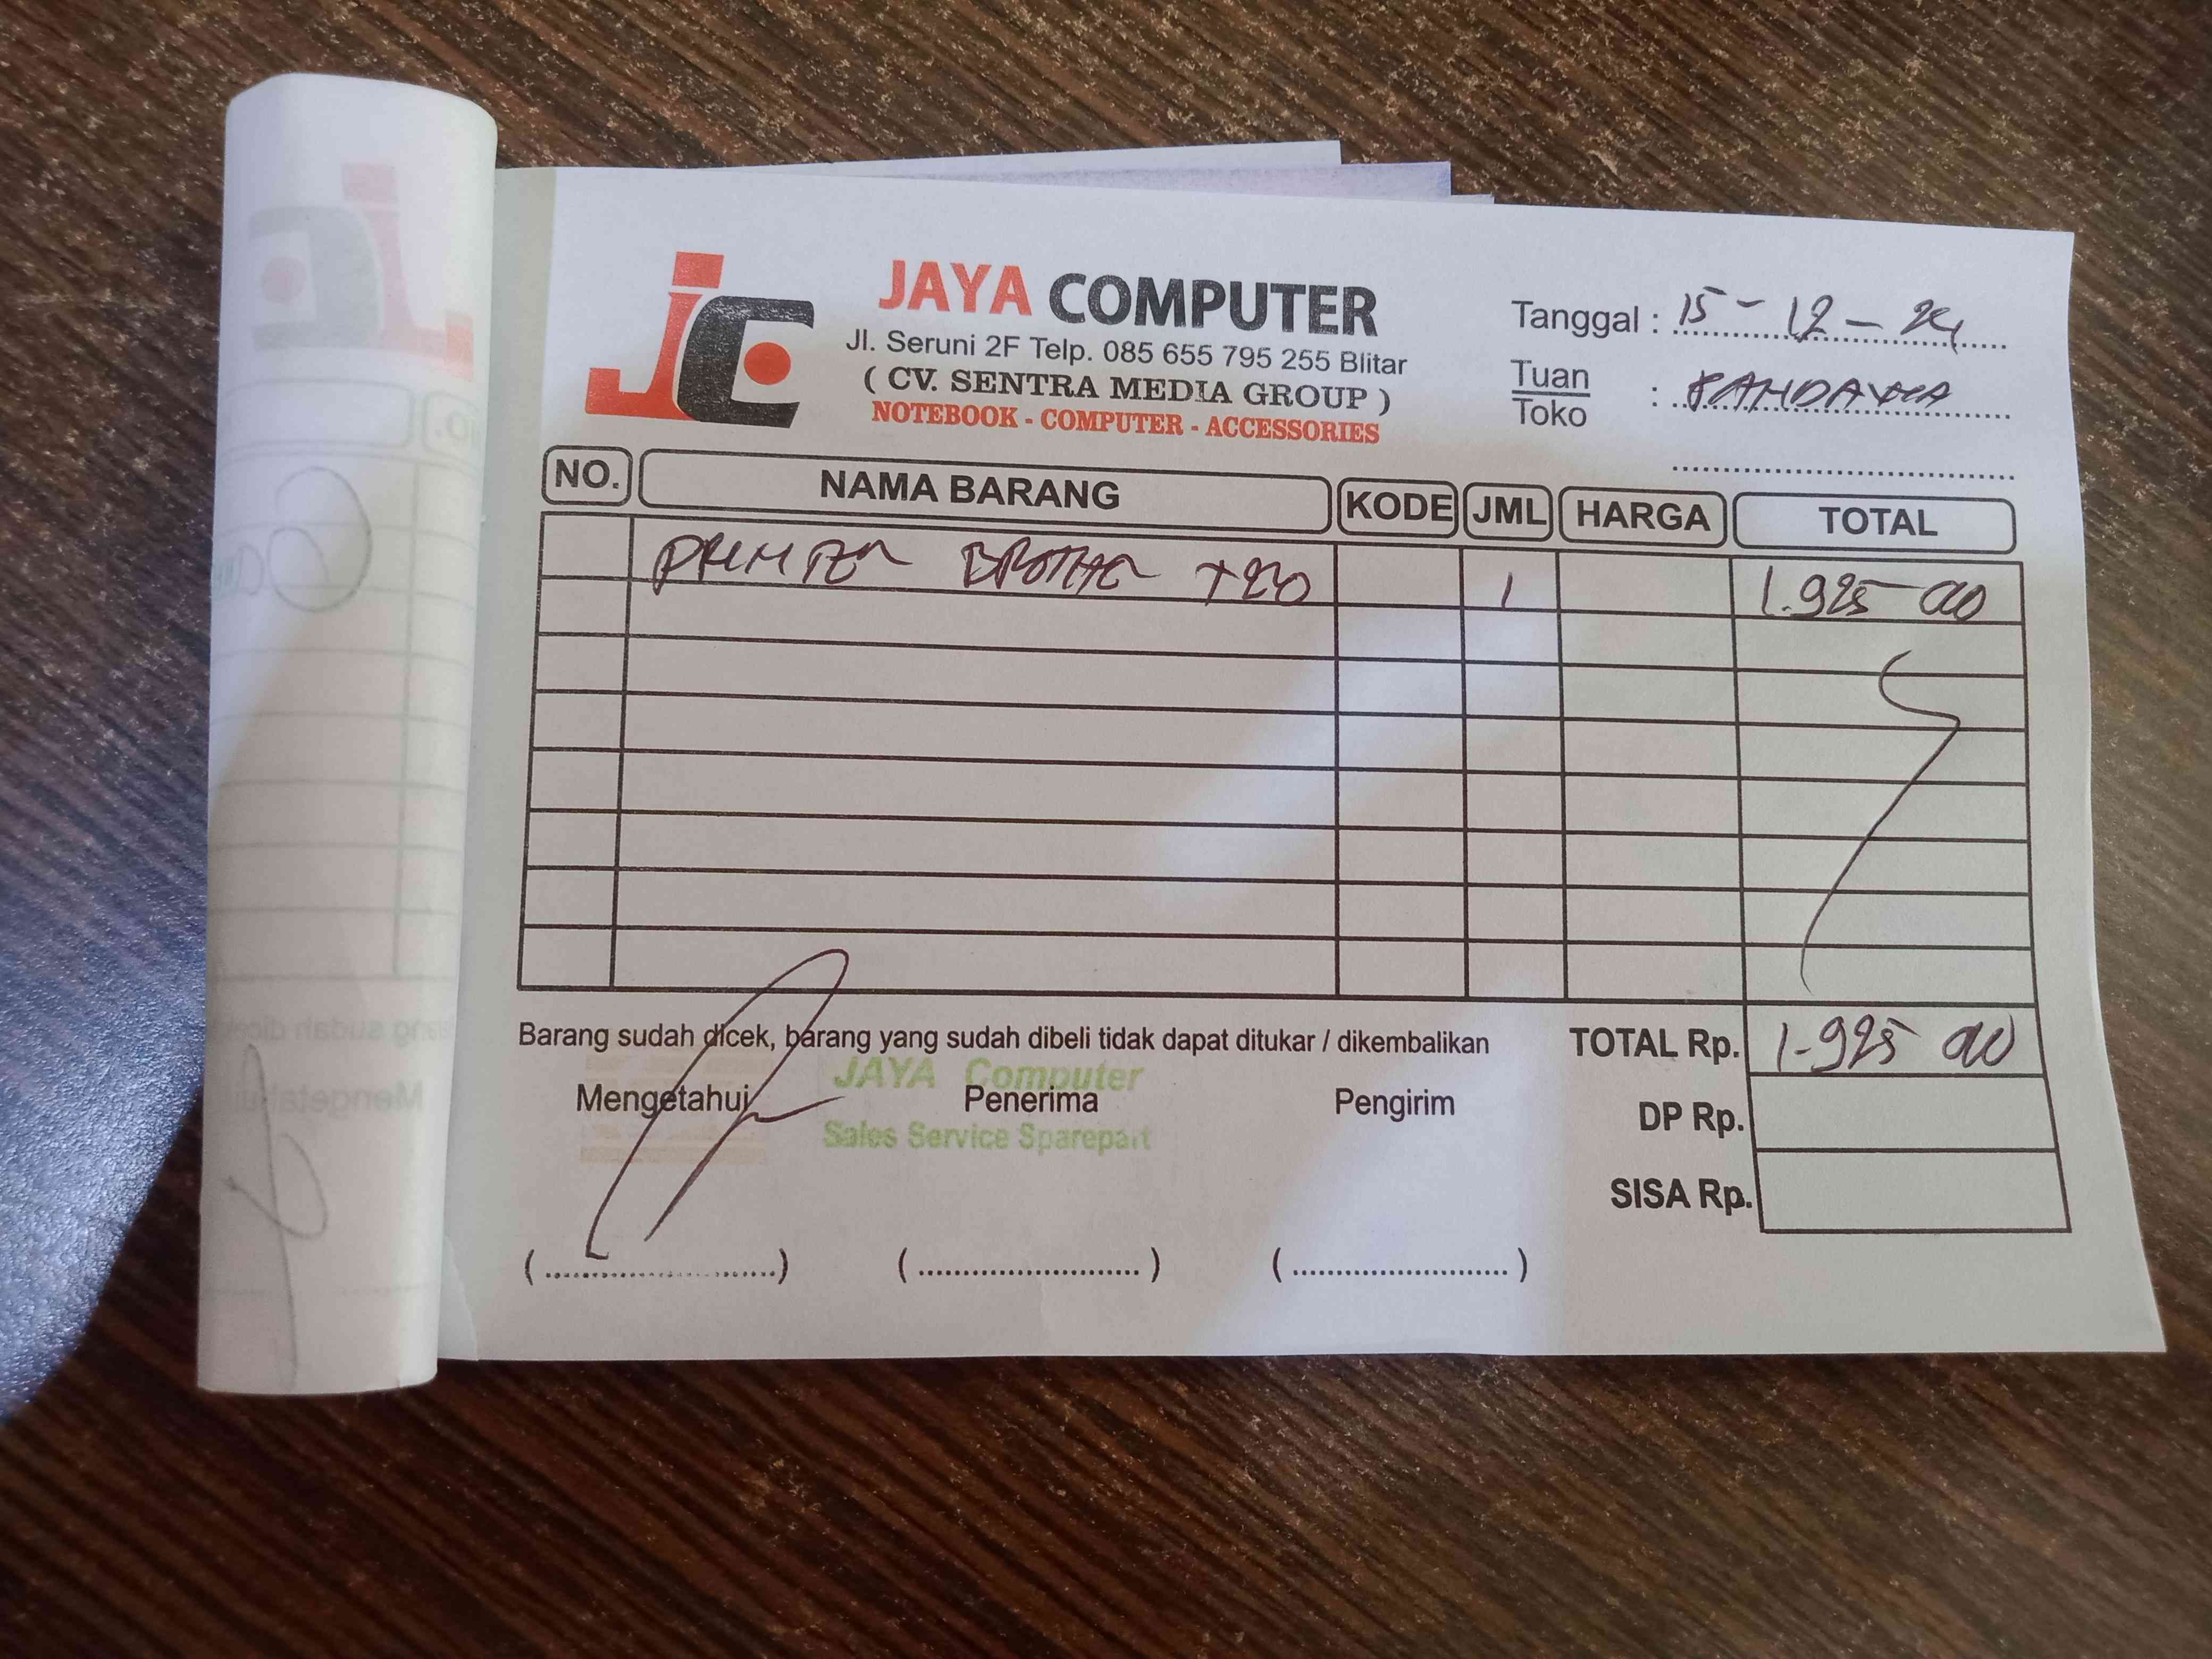 JC
JAYA COMPUTER
Jl. Seruni 2F Telp. 085 655 795 255 Blitar
( CV. SENTRA MEDIA GROUP )
NOTEBOOK - COMPUTER - ACCESSORIES
Tanggal : 15 - 12 - 24
Tuan
Toko :
NO. NAMA BARANG KODE JML HARGA TOTAL
PRINTER BROTHER T220 1 1.925 000
Barang sudah dicek, barang yang sudah dibeli tidak dapat ditukar / dikembalikan
TOTAL Rp. 1.925 000
JAYA Computer
Sales Service Sparepart
Mengetahui Penerima Pengirim
DP Rp.
SISA Rp.
(........................) (........................) (........................)